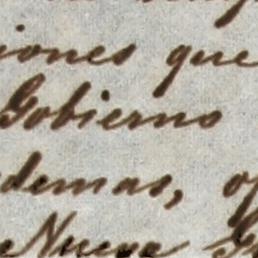 iones que
Gobierno
demas,
Nueva